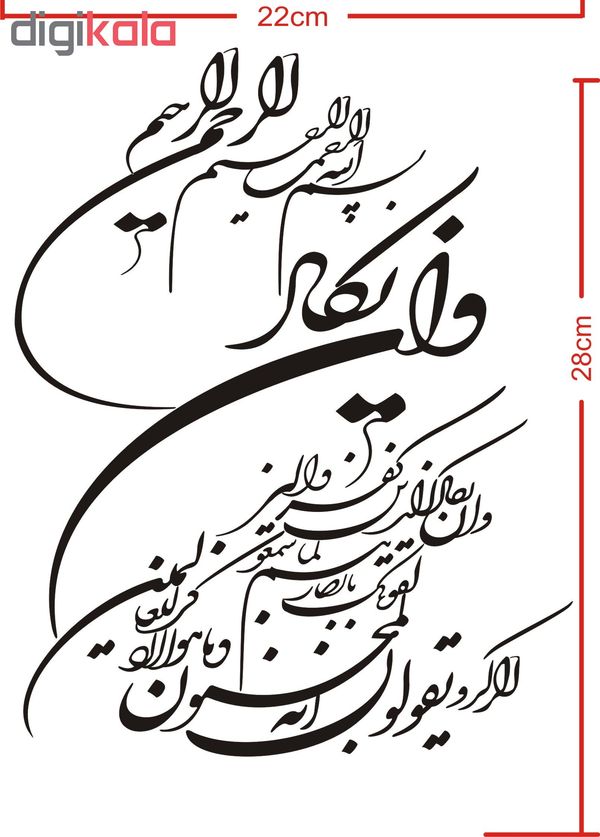 22cm
digikala
28cm
الرحمن الرحیم
بسم الله الرحمن الرحیم
وان یکاد
وان یکاد الذین کفروا لیز
لقونک بابصارهم لما سمعوا
الذکر و یقولون انه لمجنون
وما هو الا ذکر للعالمین